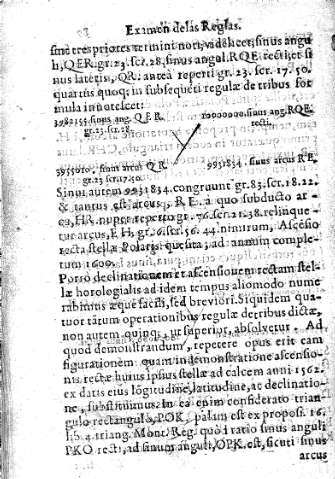 Examen de las Reglas.
sint tres priores termini noti, videlicet, sinus angu
li, QER. gr. 23. scr. 28. sinus angul. RQE recti, et si
nus lateris, QR. antea reperti gr. 23. scr. 17. 50.
quartus quoq; in subsequẽti regulæ de tribus for
mula inotescet:
3982155. sinus ang. QER. 10000000. sinus ang. RQE
gr. 23. scr. 28 recti.
3955010. sinus arcus QR. 9931834. sinus arcus RE.
gr. 23 scr. 17. 50.
Sinui autem 9931834. congruunt gr. 83. scr. 18. 22.
& tantus est arcus, RE. à quo subducto ar-
cu, HR. nuper reperto gr. 76. scr. 21. 38. relinque-
tur arcus, EH, gr. 6. scr. 56. 44. nimirum, Ascẽsio
recta stellæ Polaris quæsita; ad annum comple-
tum 1600.
Porro declinationem et ascensionem rectam stel-
læ horologialis ad idem tempus aliomodo nume
rabimus æque facili, sed breviori. Siquidem qua-
tuor tãtum operationibus regulæ detribus dictæ,
non autem quinq; ut superior, absolvetur. Ad
quod demonstrandum, repetere opus erit eam
figurationem quam in demonstratione ascensio-
nis rectæ huius ipsius stellæ ad calcem anni 1562.
ex datis eius lõgitudine, latitudine, ac declinatio-
ne, substituimus. In ea enim considerato trian-
gulo rectangulo, POK, palam est ex proposi. 16.
lib. 4. triang. Mont. Reg. quod ratio sinus anguli
PKO recti, ad sinum anguli, OPK. est, sicuti sinus
arcus